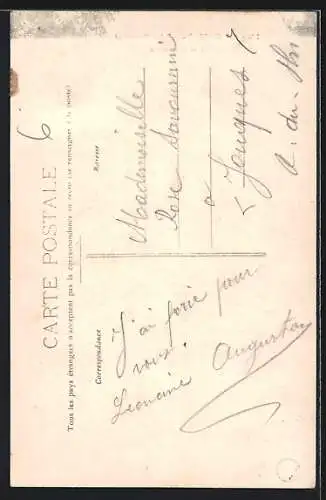 CARTE POSTALE
Tous les pays étrangers n'acceptent pas la correspondance au recto (se renseigner à la poste)
Correspondance
J'ai prié pour
vous.
Leoncine Auguston
Adresse
6
Mademoiselle
Rose
a
Jouques
B. du. Rh